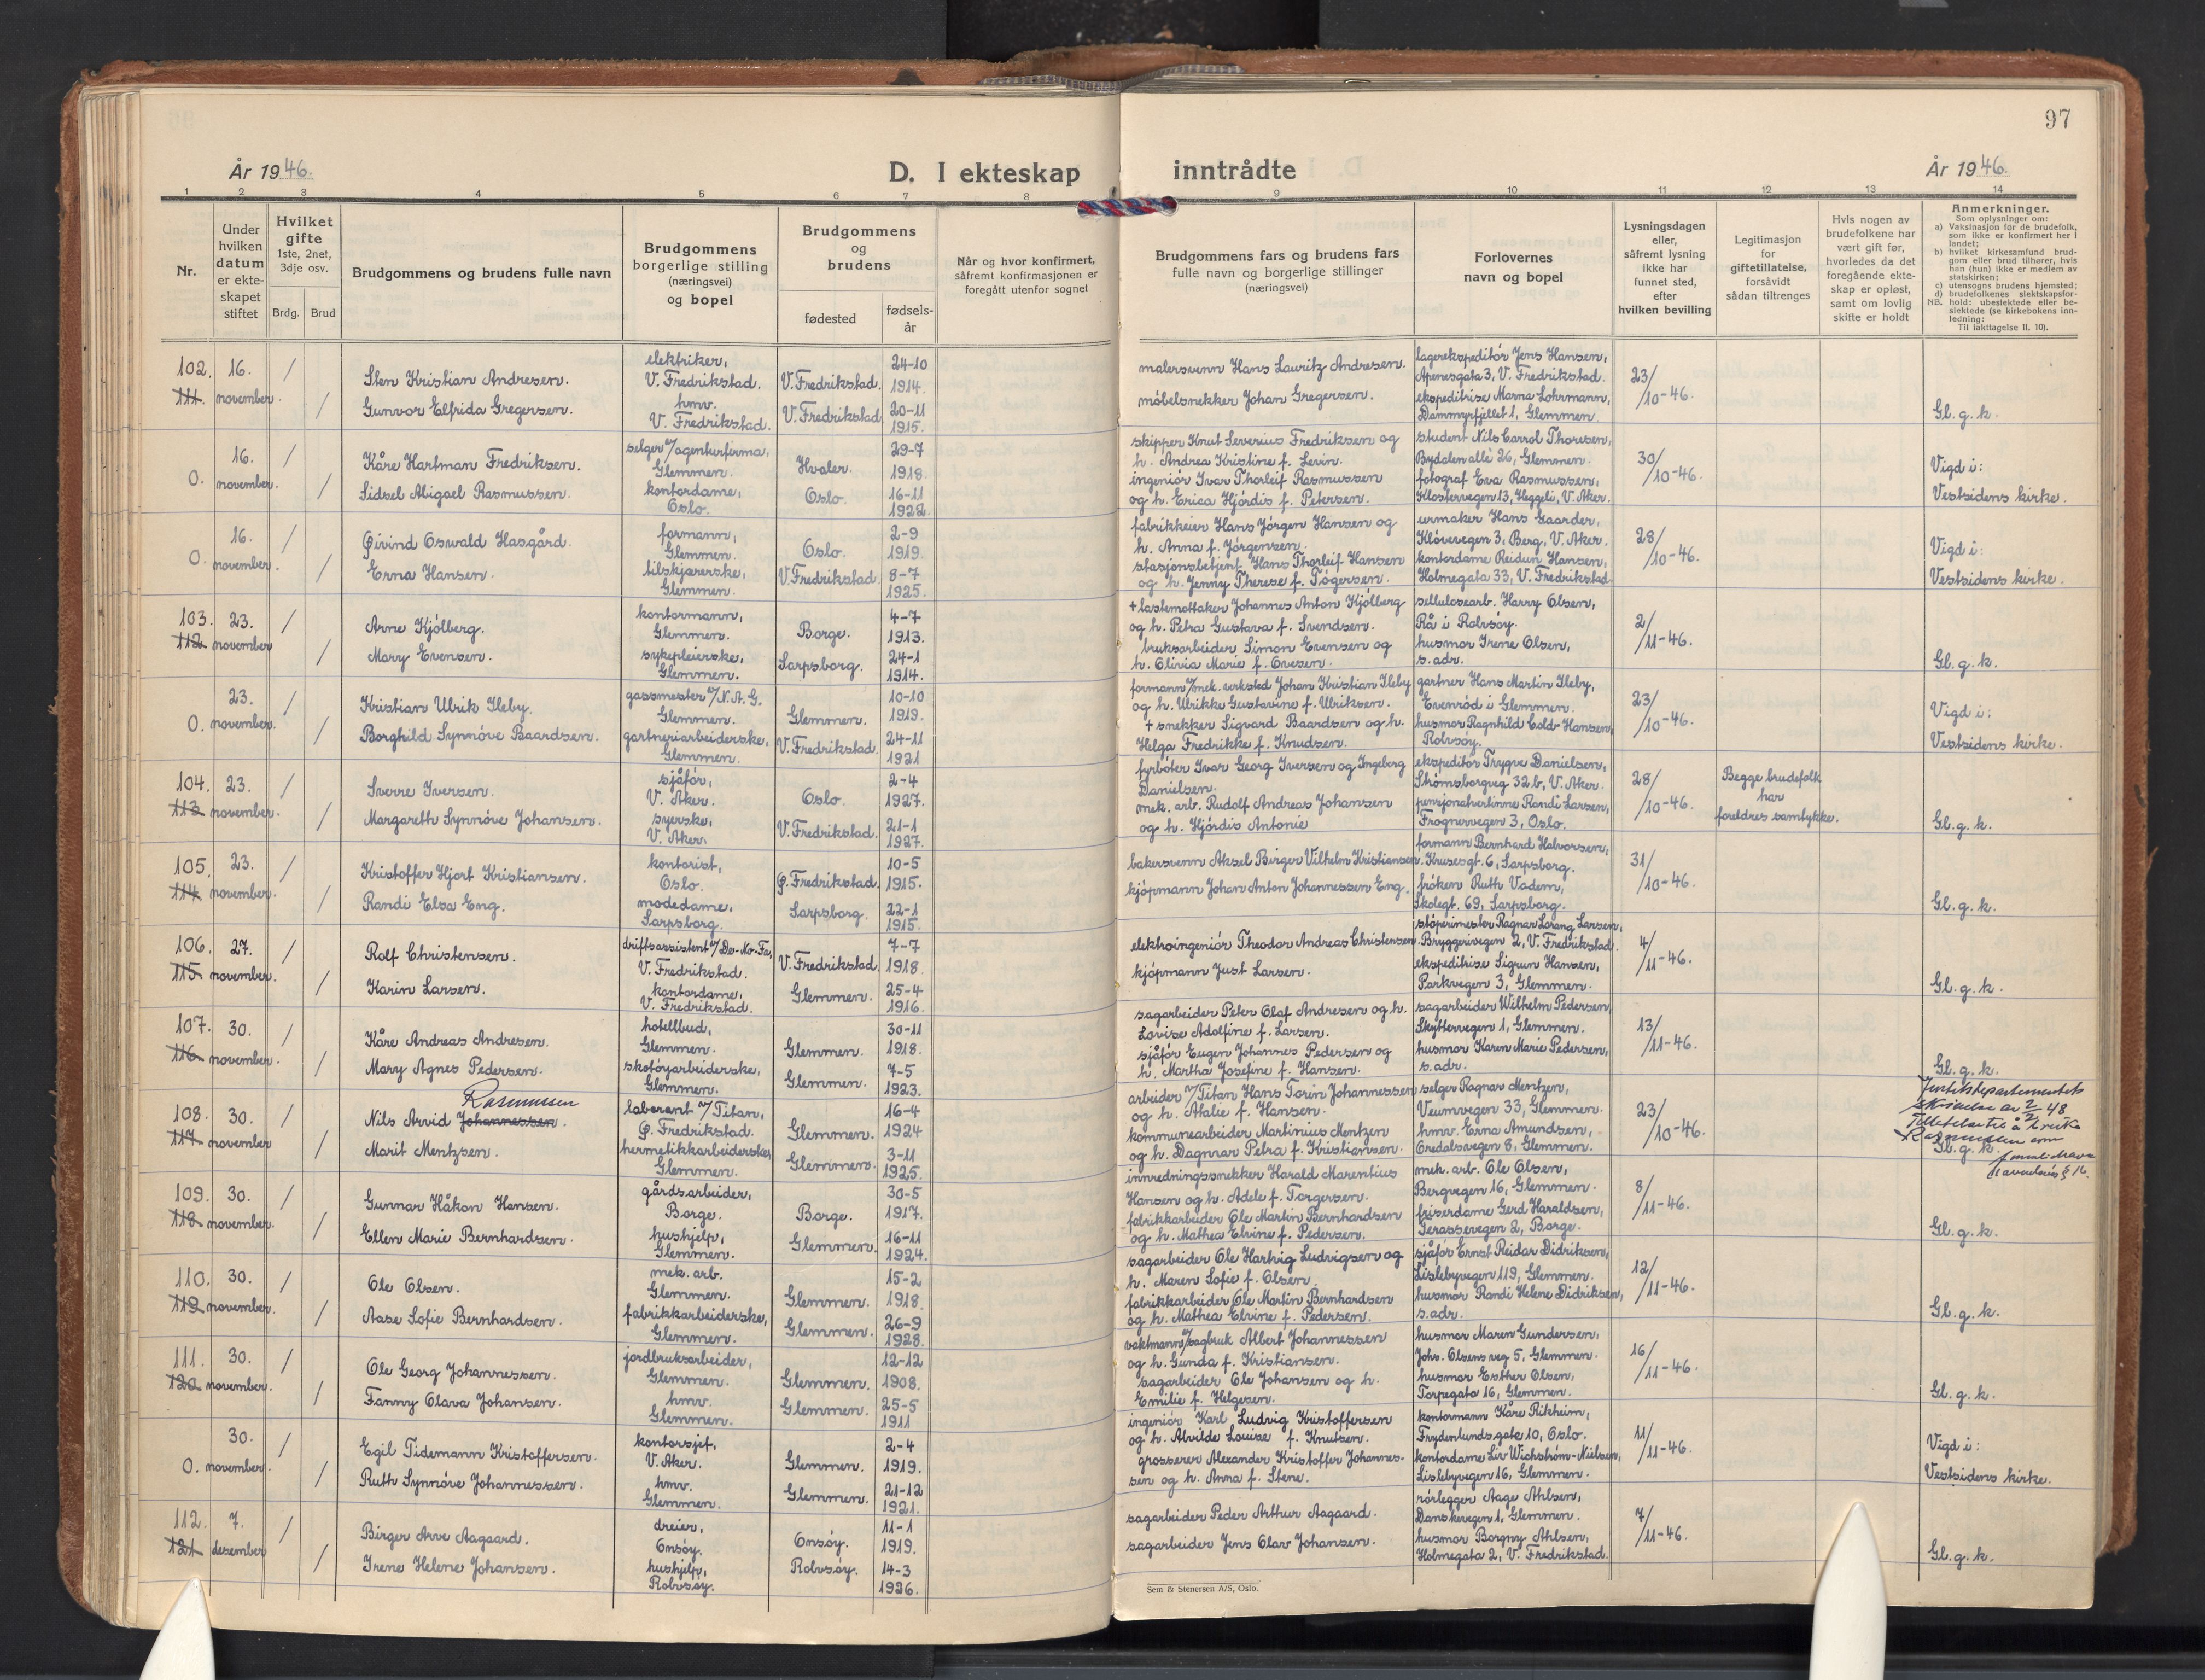 97
År 1946.
D. I ekteskap
inntrådte
År 1946.
1 2 3 4 5 6 7 8 9 10 11 12 13 14
Nr.
Under hvilken datum er ekteskapet stiftet
Hvilket gifte
1ste, 2net, 3dje osv.
Brdg. Brud
Brudgommens og brudens fulle navn
Brudgommens borgerlige stilling (næringsvei) og bopel
Brudgommens og brudens
fødested
fødselsår
Når og hvor konfirmert, såfremt konfirmasjonen er foregått utenfor sognet
Brudgommens fars og brudens fars fulle navn og borgerlige stillinger (næringsvei)
Forlovernes navn og bopel
Lysningsdagen eller, såfremt lysning ikke har funnet sted, efter hvilken bevilling
Legitimasjon for giftetillatelse, forsåvidt sådan tiltrenges
Hvis nogen av brudefolkene har vært gift før, hvorledes da det foregående ekteskap er opløst, samt om lovlig skifte er holdt
Anmerkninger.
Som oplysninger om:
a) Vaksinasjon for de brudefolk, som ikke er konfirmert her i landet;
b) hvilket kirkesamfund brudgom eller brud tilhører, hvis han (hun) ikke er medlem av statskirken;
c) utensogns brudens hjemsted;
d) brudefolkenes slektskapsforhold: ubeslektede eller beslektede (se kirkebokens innledning:
NB. Til iakttagelse II. 10).
102. 111. 16. november. / /
Sten Kristian Andresen.
Gunvor Elfrida Gregersen.
elektriker, V. Fredrikstad.
hmv. V. Fredrikstad.
V. Fredrikstad. 24-10 1914
V. Fredrikstad 20-11 1915.
malersvenn Hans Lauritz Andresen.
møbelsnekker Johan Gregersen.
lagerekspeditör Jens Hansen,
Apenesgata 3, V. Fredrikstad.
ekspeditrise Marna Lohrmann,
Dammyrfjellet 1, Glemmen.
23/10-46.
Gl. g. k.
0. 16. november. / /
Kåre Hartman Fredriksen.
Sidsel Abigael Rasmussen.
selger v/agenturfirma, Glemmen.
kontordame, Oslo.
Hvaler. 29-7 1918.
Oslo. 16-11 1922.
skipper Knut Severius Fredriksen og
h. Andrea Kristine f. Levin.
ingeniör Ivar Thorleif Rasmussen
og h. Erica Hjördis f. Petersen.
student Nils Carrol Thoresen,
Bydalen allè 26, Glemmen.
fotograf Eva Rasmussen,
Klostervegen 13, Heggeli, V. Aker.
30/10-46.
Vigd i:
Vestsidens kirke.
0. 16. november. / /
Øivind Oswald Hasgård.
Erna Hansen.
formann, Glemmen.
tilskjærerske, Glemmen.
Oslo. 2-9 1919.
V. Fredrikstad 8-7 1925.
fabrikkeier Hans Jörgen Hansen og
h. Anna f. Jörgensen.
stasjonsbetjent Hans Thorleif Hansen
og h. Jenny Therese f. Tögersen.
urmaker Hans Gaarder,
Klövervegen 3, Berg, V. Aker.
kontordame Reidun Hansen,
Holmegata 33, V. Fredrikstad
28/10-46.
Vigd i:
Vestsidens kirke.
103. 112. 23. november / /
Arne Kjölberg.
Mary Evensen.
kontormann, Glemmen.
sykepleierske, Glemmen.
Borge. 4-7 1913.
Sarpsborg. 24-1 1914.
+ lastemottaker Johannes Anton Kjölberg
og h. Petra Gustava f. Svendsen.
bruksarbeider Simon Evensen og
h. Olivia Marie f. Ovesen.
sellulosearb. Harry Olsen,
Rå i Rolvsöy.
husmor Irene Olsen,
s. adr.
2/11-46.
Gl. g. k.
0. 23. november. / /
Kristian Ulrik Ileby.
Borghild Synnöve Baardsen.
gassmester v/N.A.G. Glemmen.
gartneriarbeiderske, Glemmen.
Glemmen. 10-10 1919.
V. Fredrikstad. 24-11 1921
formann v/mek. verksted Johan Kristian Ileby
og h. Ulrikke Gustavine f. Ulriksen.
+ snekker Sigvard Baardsen og h.
Helga Fredrikke f. Knudsen.
gartner Hans Martin Ileby,
Evenröd i Glemmen.
husmor Ragnhild Cold-Hansen,
Rolvsöy.
23/10-46.
Vigd i:
Vestsidens kirke.
104. 113. 23. november. / /
Sverre Iversen.
Margareth Synnöve Johansen.
sjåför, V. Aker.
syerske, V. Aker.
Oslo. 2-4 1927.
V. Fredrikstad. 21-1 1927.
fyrböter Ivar Georg Iversen og Ingeberg
Danielsen.
mek. arb. Rudolf Andreas Johansen
og h. Hjördis Antonie
ekspeditör Trygve Danielsen,
Strömsborgveg 32 b, V. Aker.
pensjonatvertinne Randi Larsen,
Frognervegen 3, Oslo.
28/10-46.
Begge brudefolk
har
foreldres samtykke.
Gl. g. k.
105. 114. 23. november. / /
Kristoffer Hjort Kristiansen.
Randi Elsa Eng.
kontorist, Oslo.
modedame, Sarpsborg.
Ø. Fredrikstad. 10-5 1915.
Sarpsborg. 22-1 1915.
bakersvenn Aksel Birger Vilhelm Kristiansen.
kjöpmann Johan Anton Johannessen Eng.
formann Bernhard Halvorsen,
Krusesgt. 6, Sarpsborg.
fröken Ruth Vadem,
Skolegt. 69, Sarpsborg.
31/10-46.
Gl. g. k.
106. 115. 27. november. / /
Rolf Christensen.
Karin Larsen.
driftsassistent v/De-No-Fa, V. Fredrikstad.
kontordame, V. Fredrikstad.
V. Fredrikstad 7-7 1918.
Glemmen. 25-4 1916.
elektroingeniör Theodor Andreas Christensen.
kjöpmann Just Larsen.
stöperimester Ragnar Lorang Larsen,
Bryggerivegen 2, V. Fredrikstad.
ekspeditrise Sigrun Hansen,
Parkvegen 3, Glemmen.
4/11-46.
Gl. g. k.
107. 116. 30. november. / /
Kåre Andreas Andresen.
Mary Agnes Pedersen.
hotellbud, Glemmen.
skotöyarbeiderske, Glemmen.
Glemmen. 30-11 1918.
Glemmen. 7-5 1923.
sagarbeider Peter Olaf Andresen og h.
Lovise Adolfine f. Larsen.
sjåför Eugen Johannes Pedersen og
h. Martha Josefine f. Hansen.
sagarbeider Wilhelm Pedersen,
Skyttervegen 1, Glemmen.
husmor Karen Marie Pedersen,
s. adr.
13/11-46.
Gl. g. k.
108. 117. 30. november. / /
Rasmussen
Nils Arvid Johannessen.
Marit Mentzsen.
laborant v/Titan, Ø. Fredrikstad.
hermetikkarbeiderske, Glemmen.
Glemmen. 16-4 1924
Glemmen. 3-11 1925.
arbeider v/Titan Hans Torin Johannessen
og h. Atalie f. Hansen.
kommunearbeider Martinius Mentzen
og h. Dagmar Petra f. Kristiansen.
selger Ragnar Mentzen,
Veumvegen 33, Glemmen.
hmv. Erna Amundsen,
Oredalsvegen 8, Glemmen.
23/10-46.
Justitsdepartementets
skrivelse av 2/2 48
Tillatelse til å bruke
Rasmussen som
Gl. g. k.
109. 118. 30. november. / /
Gunnar Håkon Hansen.
Ellen Marie Bernhardsen.
gårdsarbeider, Borge.
hushjelp, Glemmen.
Borge. 30-5 1917.
Glemmen. 16-11 1924.
innredningssnekker Harald Marentius
Hansen og h. Adele f. Torgersen.
fabrikkarbeider Ole Martin Bernhardsen
og h. Mathea Elvine f. Pedersen.
mek. arb. Ole Olsen,
Bergvegen 16, Glemmen.
friserdame Gerd Haraldsen,
Terassevegen 2, Borge.
8/11-46.
Gl. g. k.
110. 119. 30. november. / /
Ole Olsen.
Aase Sofie Bernhardsen.
mek. arb. Glemmen.
fabrikkarbeiderske, Glemmen.
Glemmen. 15-2 1918.
Glemmen. 26-9 1928.
sagarbeider Ole Hartvig Ludvigsen og
h. Maren Sofie f. Olsen.
fabrikkarbeider Ole Martin Bernhardsen
og h. Mathea Elvine f. Pedersen.
sjåför Ernst Reidar Didriksen,
Lislebyvegen 119, Glemmen.
husmor Randi Helene Didriksen,
s. adr.
12/11-46.
Gl. g. k.
111. 120. 30. november. / /
Ole Georg Johannessen.
Fanny Olava Johansen.
jordbruksarbeider, Glemmen.
hmv. Glemmen.
Glemmen. 12-12 1908.
Glemmen. 25-5 1911
vaktmann v/sagbruk Albert Johannessen
og h. Gunda f. Kristiansen.
sagarbeider Ole Johansen og h.
Emilie f. Helgesen.
husmor Maren Gundersen,
Johs. Olsens veg 5, Glemmen.
husmor Esther Olsen,
Torpegata 16, Glemmen.
16/11-46.
Gl. g. k.
0. 30. november. / /
Egil Tidemann Kristoffersen.
Ruth Synnöve Johannessen.
kontorsjef, V. Aker.
hmv. Glemmen.
Glemmen. 2-4 1919.
Glemmen. 21-12 1921.
ingeniör Karl Ludvig Kristoffersen
og h. Alvilde Louise f. Knutsen.
grosserer Alexander Kristoffer Johannes-
sen og h. Anna f. Stene.
kontormann Kåre Rikheim,
Frydenlundsgate 10, Oslo.
kontordame Liv Wichström-Nielsen,
Lislebyvegen 16, Glemmen.
11/11-46.
Vigd i:
Vestsidens kirke.
112. 121. 7. desember / /
Birger Arve Aagaard.
Irene Helene Johansen.
dreier, Onsöy.
hushjelp, Rolvsöy.
Onsöy. 11-1 1919.
Rolvsöy. 14-3 1926.
sagarbeider Peder Arthur Aagaard.
sagarbeider Jens Olav Johansen.
rörlegger Aage Ahlsen,
Danskevegen 1, Glemmen.
husmor Borgny Ahlsen,
Holmegata 2, V. Fredrikstad.
7/11-46.
Gl. g. k.
Sem & Stenersen A/S, Oslo.